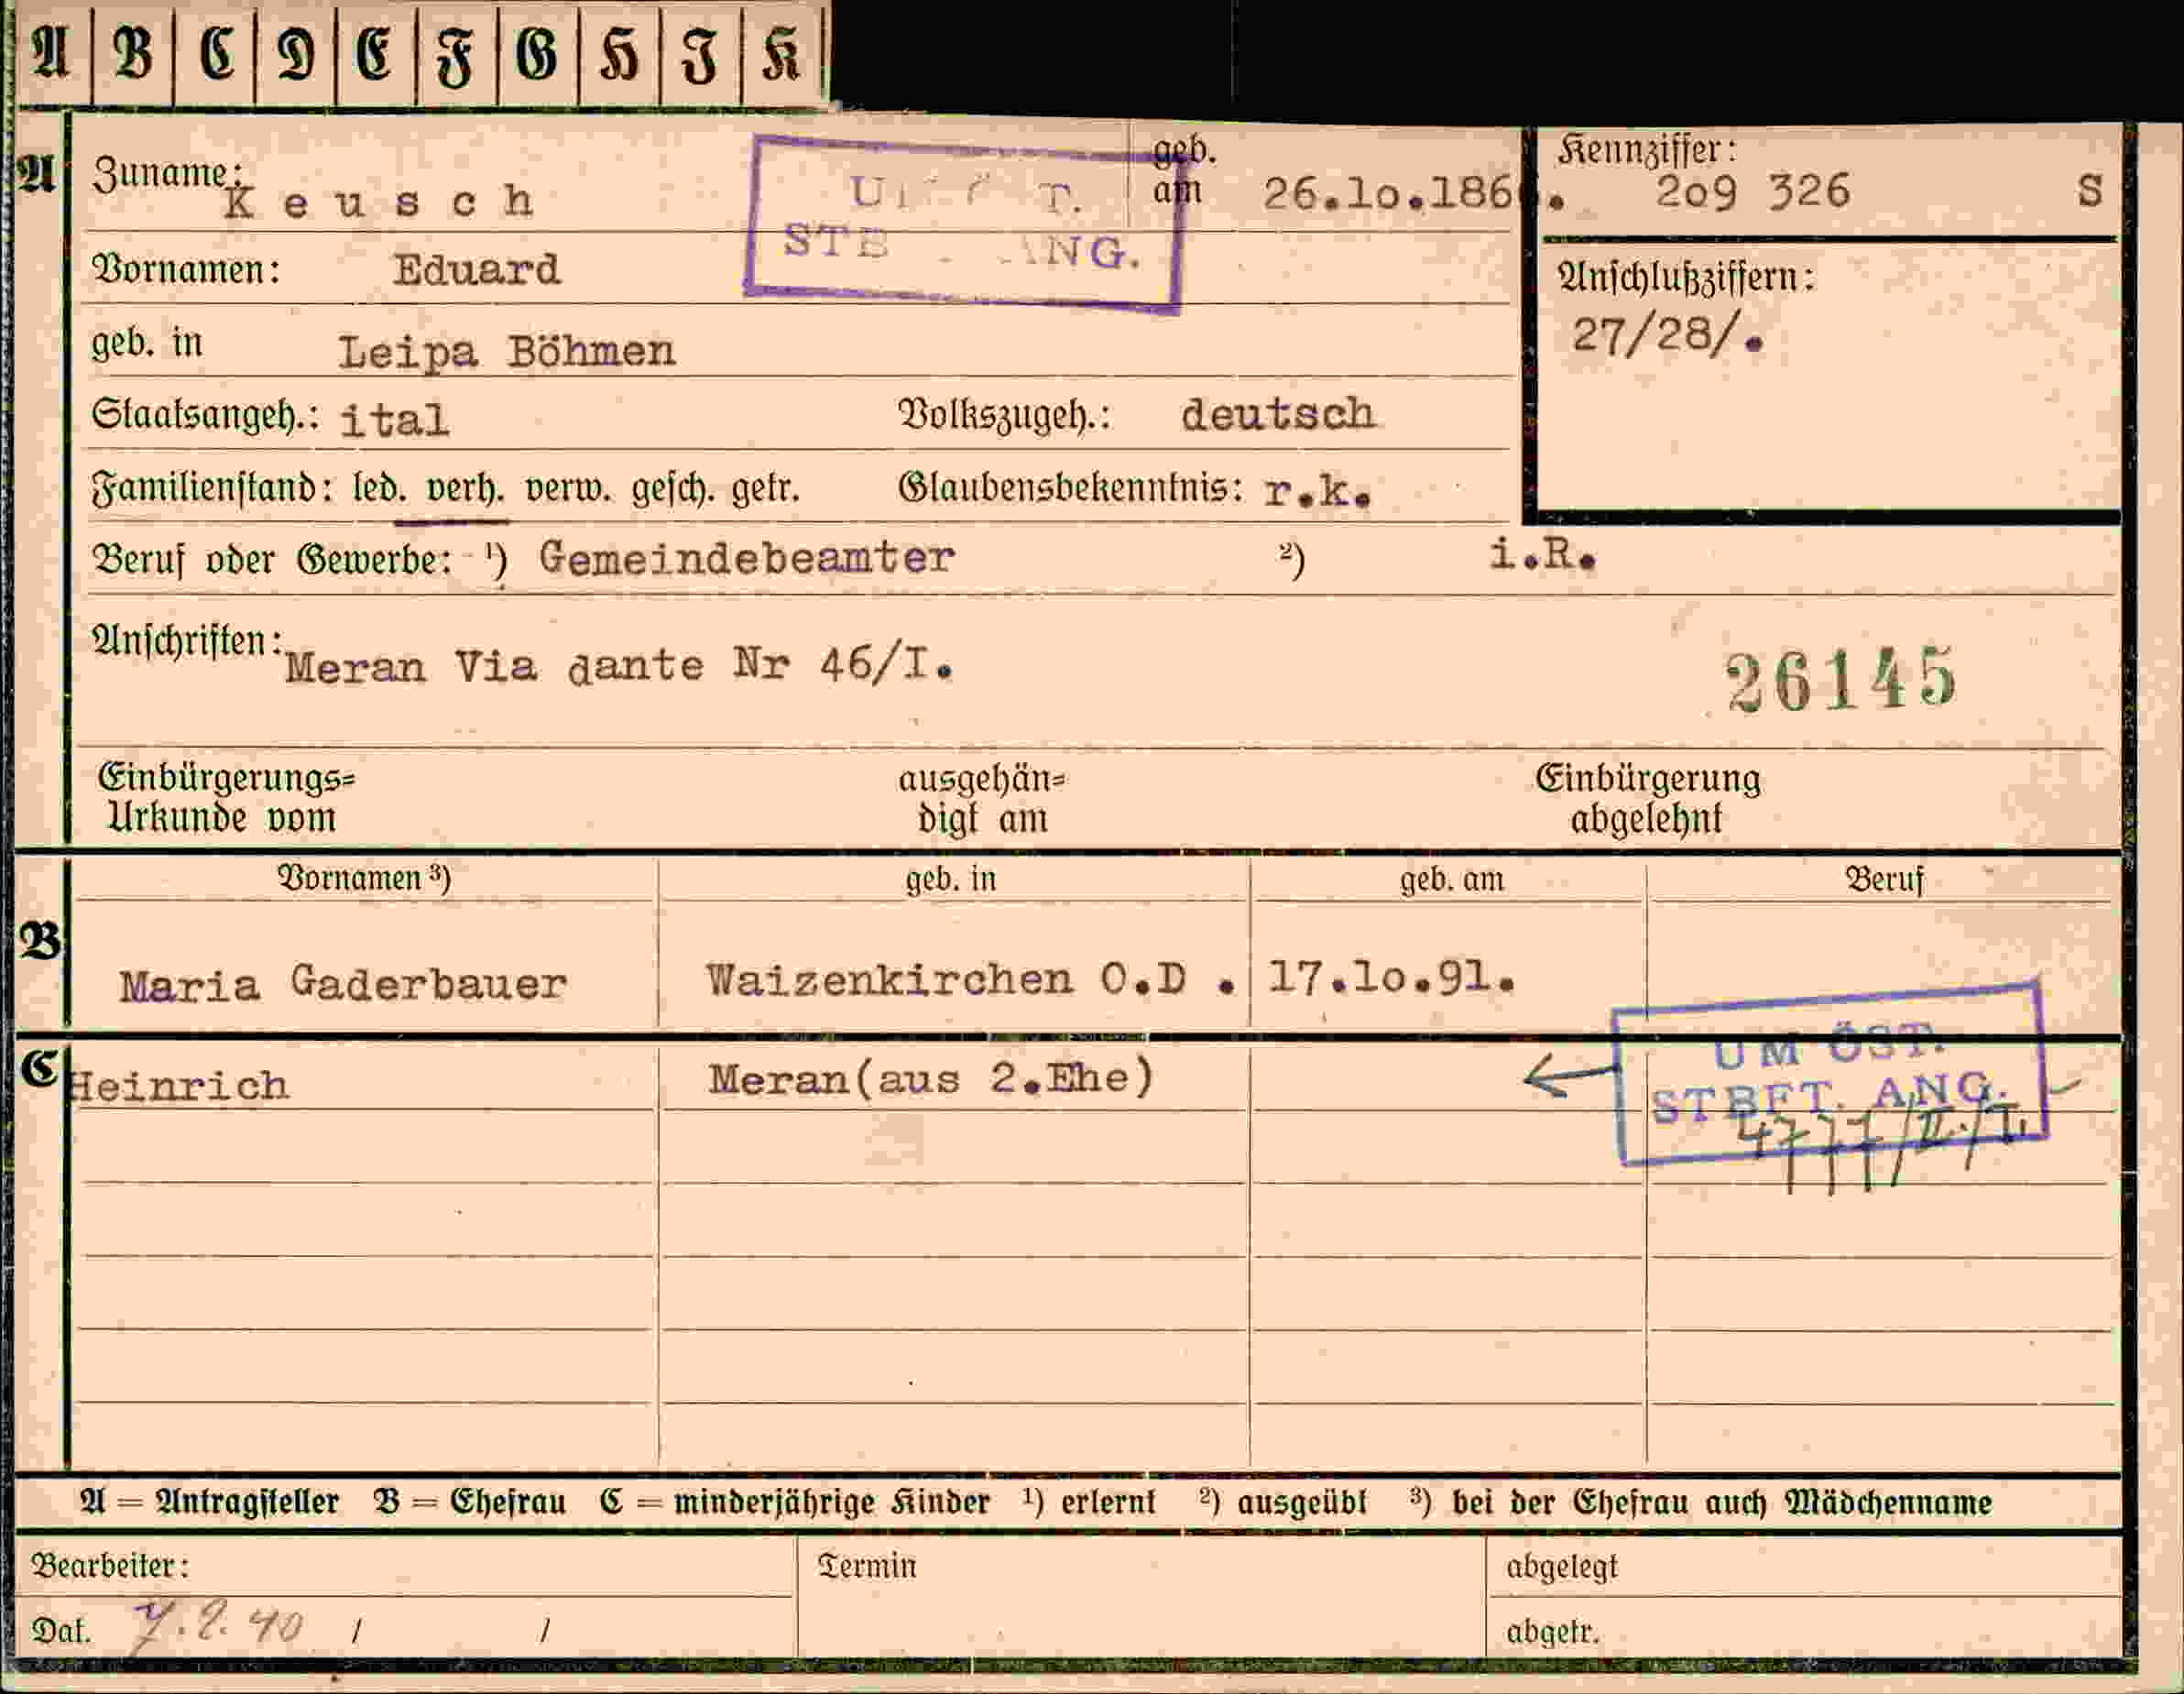 A B C D E F G H J K
A
Zuname: Keusch
geb. am 26.lo.186 .
Kennziffer: 2o9 326 S
STB ANG.
Vornamen: Eduard
Anschlußziffern:
27/28/.
geb. in Leipa Böhmen
Staatsangeh.: ital Volkszugeh.: deutsch
Familienstand: led. verh. verw. gesch. getr. Glaubensbekenntnis: r.k.
Beruf oder Gewerbe: ¹) Gemeindebeamter ²) i.R.
Anschriften: Meran Via dante Nr 46/I.
26145
Einbürgerungs= Urkunde vom
ausgehän= digt am
Einbürgerung abgelehnt
Vornamen ³) geb. in geb. am Beruf
B
Maria Gaderbauer Waizenkirchen O.D . 17.lo.91.
C
Heinrich Meran(aus 2.Ehe)
UM ÖST.
STBFT. ANG.
4777/II./I.
A = Antragsteller B = Ehefrau C = minderjährige Kinder ¹) erlernt ²) ausgeübt ³) bei der Ehefrau auch Mädchenname
Bearbeiter: Termin abgelegt
Dat. 7.2.40 / / abgetr.